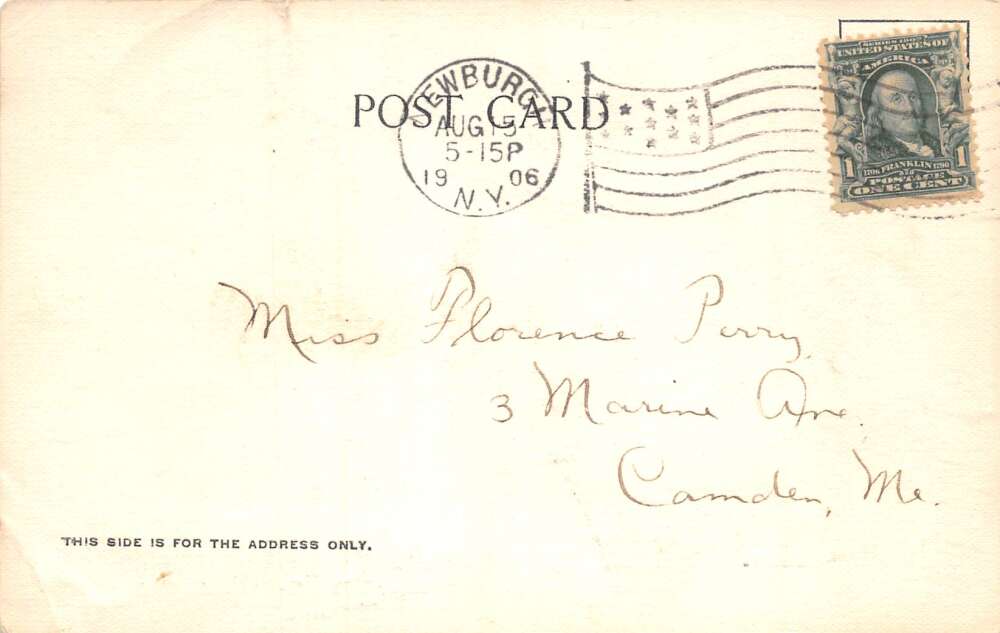 POST CARD
NEWBURGH
AUG 15
5-15P
19 06
N.Y.
SERIES 1902
UNITED STATES OF
AMERICA
1706 FRANKLIN 1790
1 1
POSTAGE
ONE CENT
Miss Florence Perry,
3 Marine Ave.
Camden, Me.
THIS SIDE IS FOR THE ADDRESS ONLY.